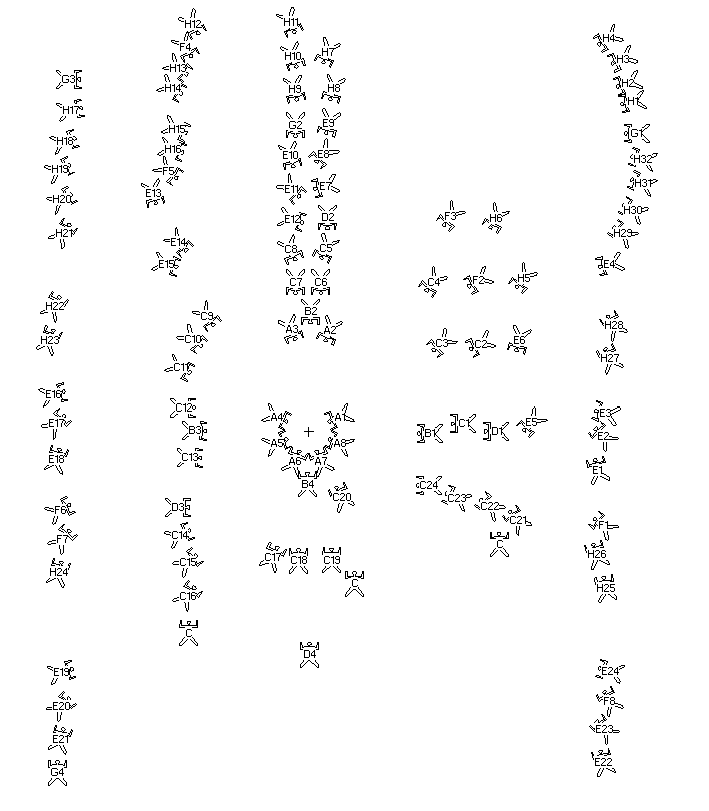 H11
H12
H4
F4
H10
H7
H3
H13
G3
H14
H9
H8
H2
H1
H17
G2
E9
H15
G1
H18
H16
E10
E8
H32
H19
F5
H31
E13
E11
E7
H20
H30
E12
D2
F3
H6
H21
H29
E14
C8
C5
E15
E4
C7
C6
C4
F2
H5
H22
B2
C9
H28
A3
A2
H23
C10
C3
C2
E6
H27
C11
E16
C12
E17
B3
A4
A1
B1
C1
D1
E5
E3
E2
A5
A8
E18
C13
A6
A7
E1
B4
C24
C20
C23
F6
D3
C22
C21
F1
F7
C14
C
H26
H24
C15
C17
C18
C19
C
H25
C16
C
D4
E19
E24
E20
F8
E21
E23
G4
E22